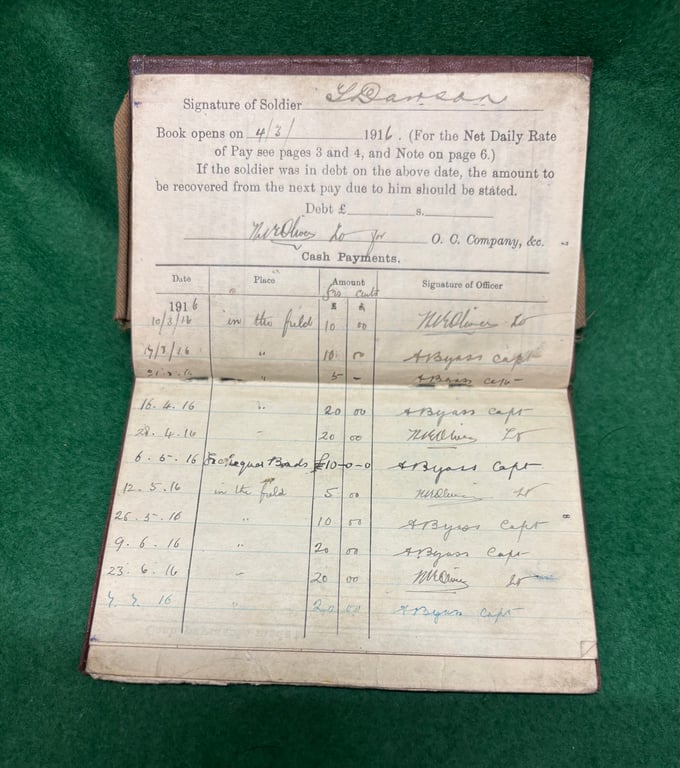 Signature of Soldier T Dawson
Book opens on 4/3/ 1916. (For the Net Daily Rate
of Pay see pages 3 and 4, and Note on page 6.)
If the soldier was in debt on the above date, the amount to
be recovered from the next pay due to him should be stated.
Debt £ s.
Oliver Lt for O. C. Company, &c.
Cash Payments.
Date Place Amount Signature of Officer
£ frs cents
1916
10/3/16 in the field 10 00 Oliver Lt
/3/16 " 10 00 A Byass Capt
" 5 - A Byass Capt
16.4.16 " 20 00 A Byass Capt
28.4.16 " 20 00 Oliver Lt
6.5.16 Exchequer Bonds £10-0-0 A Byass Capt
12.5.16 in the field 5 00 Oliver Lt
26.5.16 " 10 00 A Byass Capt
9.6.16 " 20 00 A Byass Capt
23.6.16 " 20 00 Oliver Lt
7.7.16 " 20 00 A Byass Capt